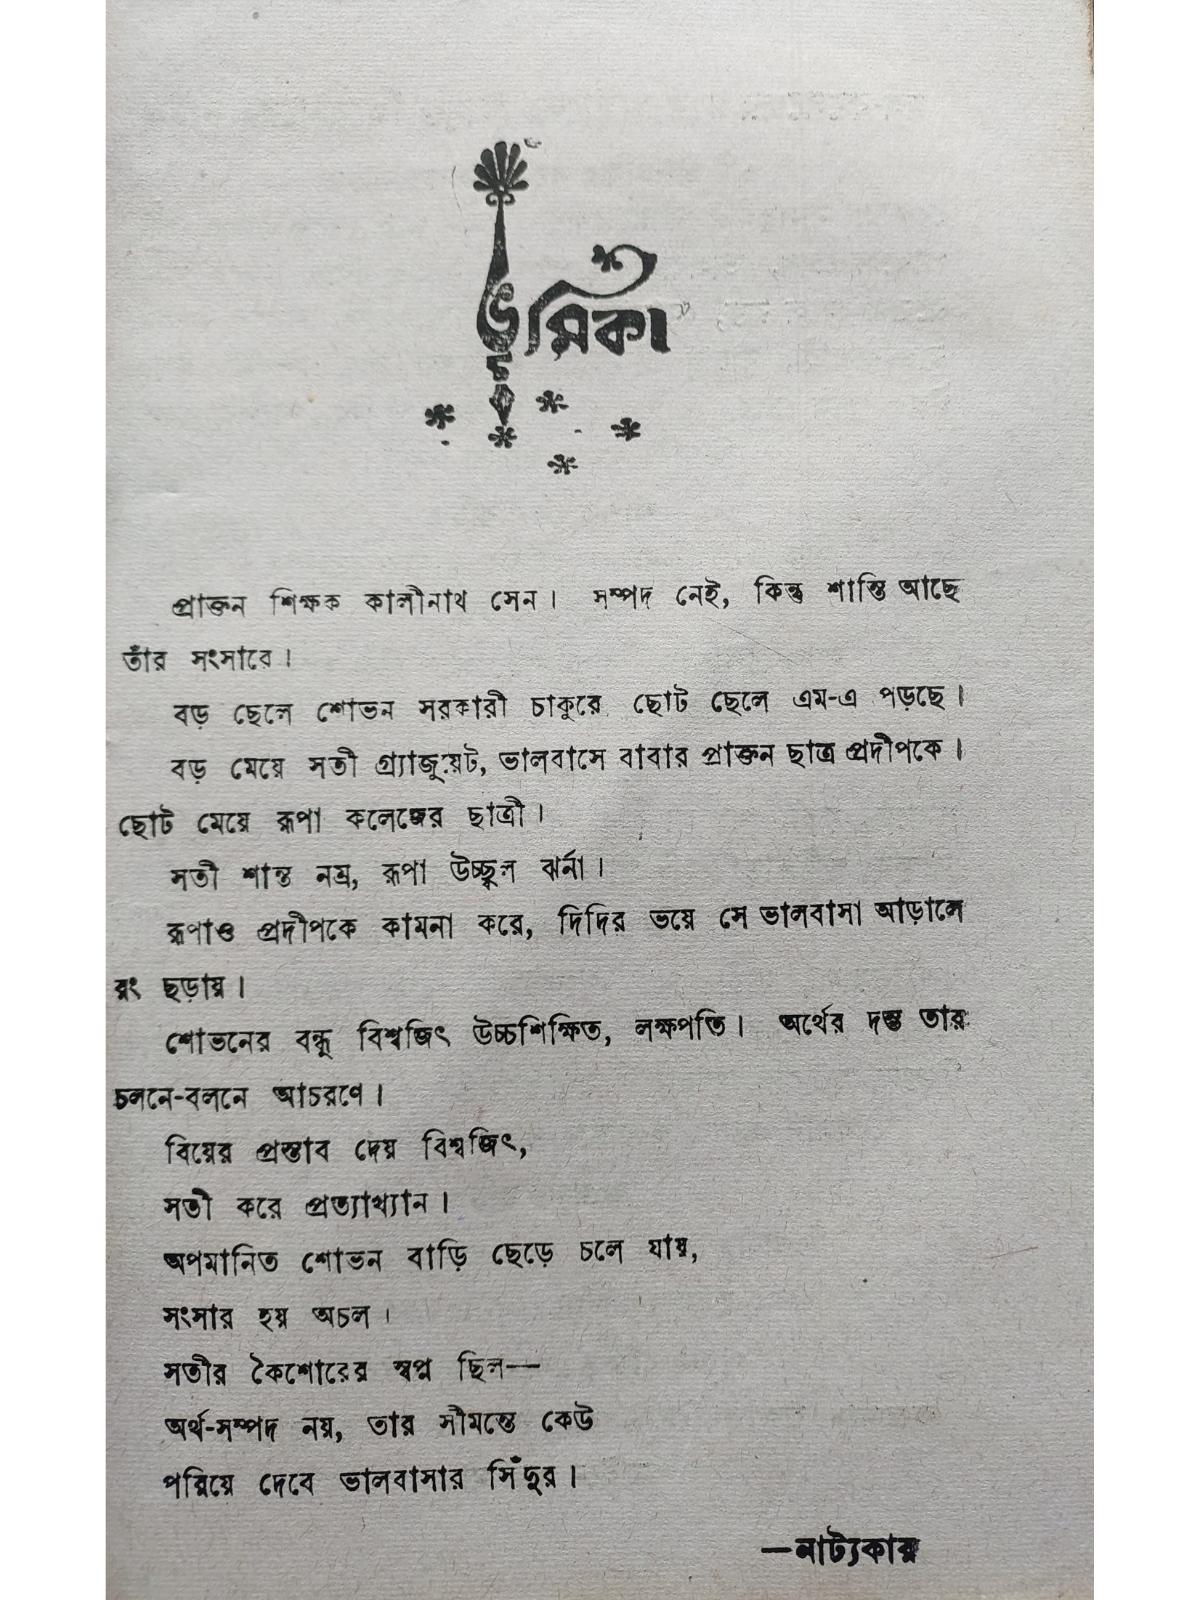 ভূমিকা
প্রাক্তন শিক্ষক কালীনাথ সেন। সম্পদ নেই, কিন্তু শান্তি আছে
তাঁর সংসারে।
বড় ছেলে শোভন সরকারী চাকুরে ছোট ছেলে এম-এ পড়ছে।
বড় মেয়ে সতী গ্র্যাজুয়েট, ভালবাসে বাবার প্রাক্তন ছাত্র প্রদীপকে।
ছোট মেয়ে রূপা কলেজের ছাত্রী।
সতী শান্ত নম্র, রূপা উচ্ছ্বল ঝর্না।
রূপাও প্রদীপকে কামনা করে, দিদির ভয়ে সে ভালবাসা আড়ালে
রং ছড়ায়।
শোভনের বন্ধু বিশ্বজিৎ উচ্চশিক্ষিত, লক্ষপতি। অর্থের দম্ভ তার
চলনে-বলনে আচরণে।
বিয়ের প্রস্তাব দেয় বিশ্বজিৎ,
সতী করে প্রত্যাখ্যান।
অপমানিত শোভন বাড়ি ছেড়ে চলে যায়,
সংসার হয় অচল।
সতীর কৈশোরের স্বপ্ন ছিল—
অর্থ-সম্পদ নয়, তার সীমন্তে কেউ
পরিয়ে দেবে ভালবাসার সিঁদুর।
—নাট্যকার